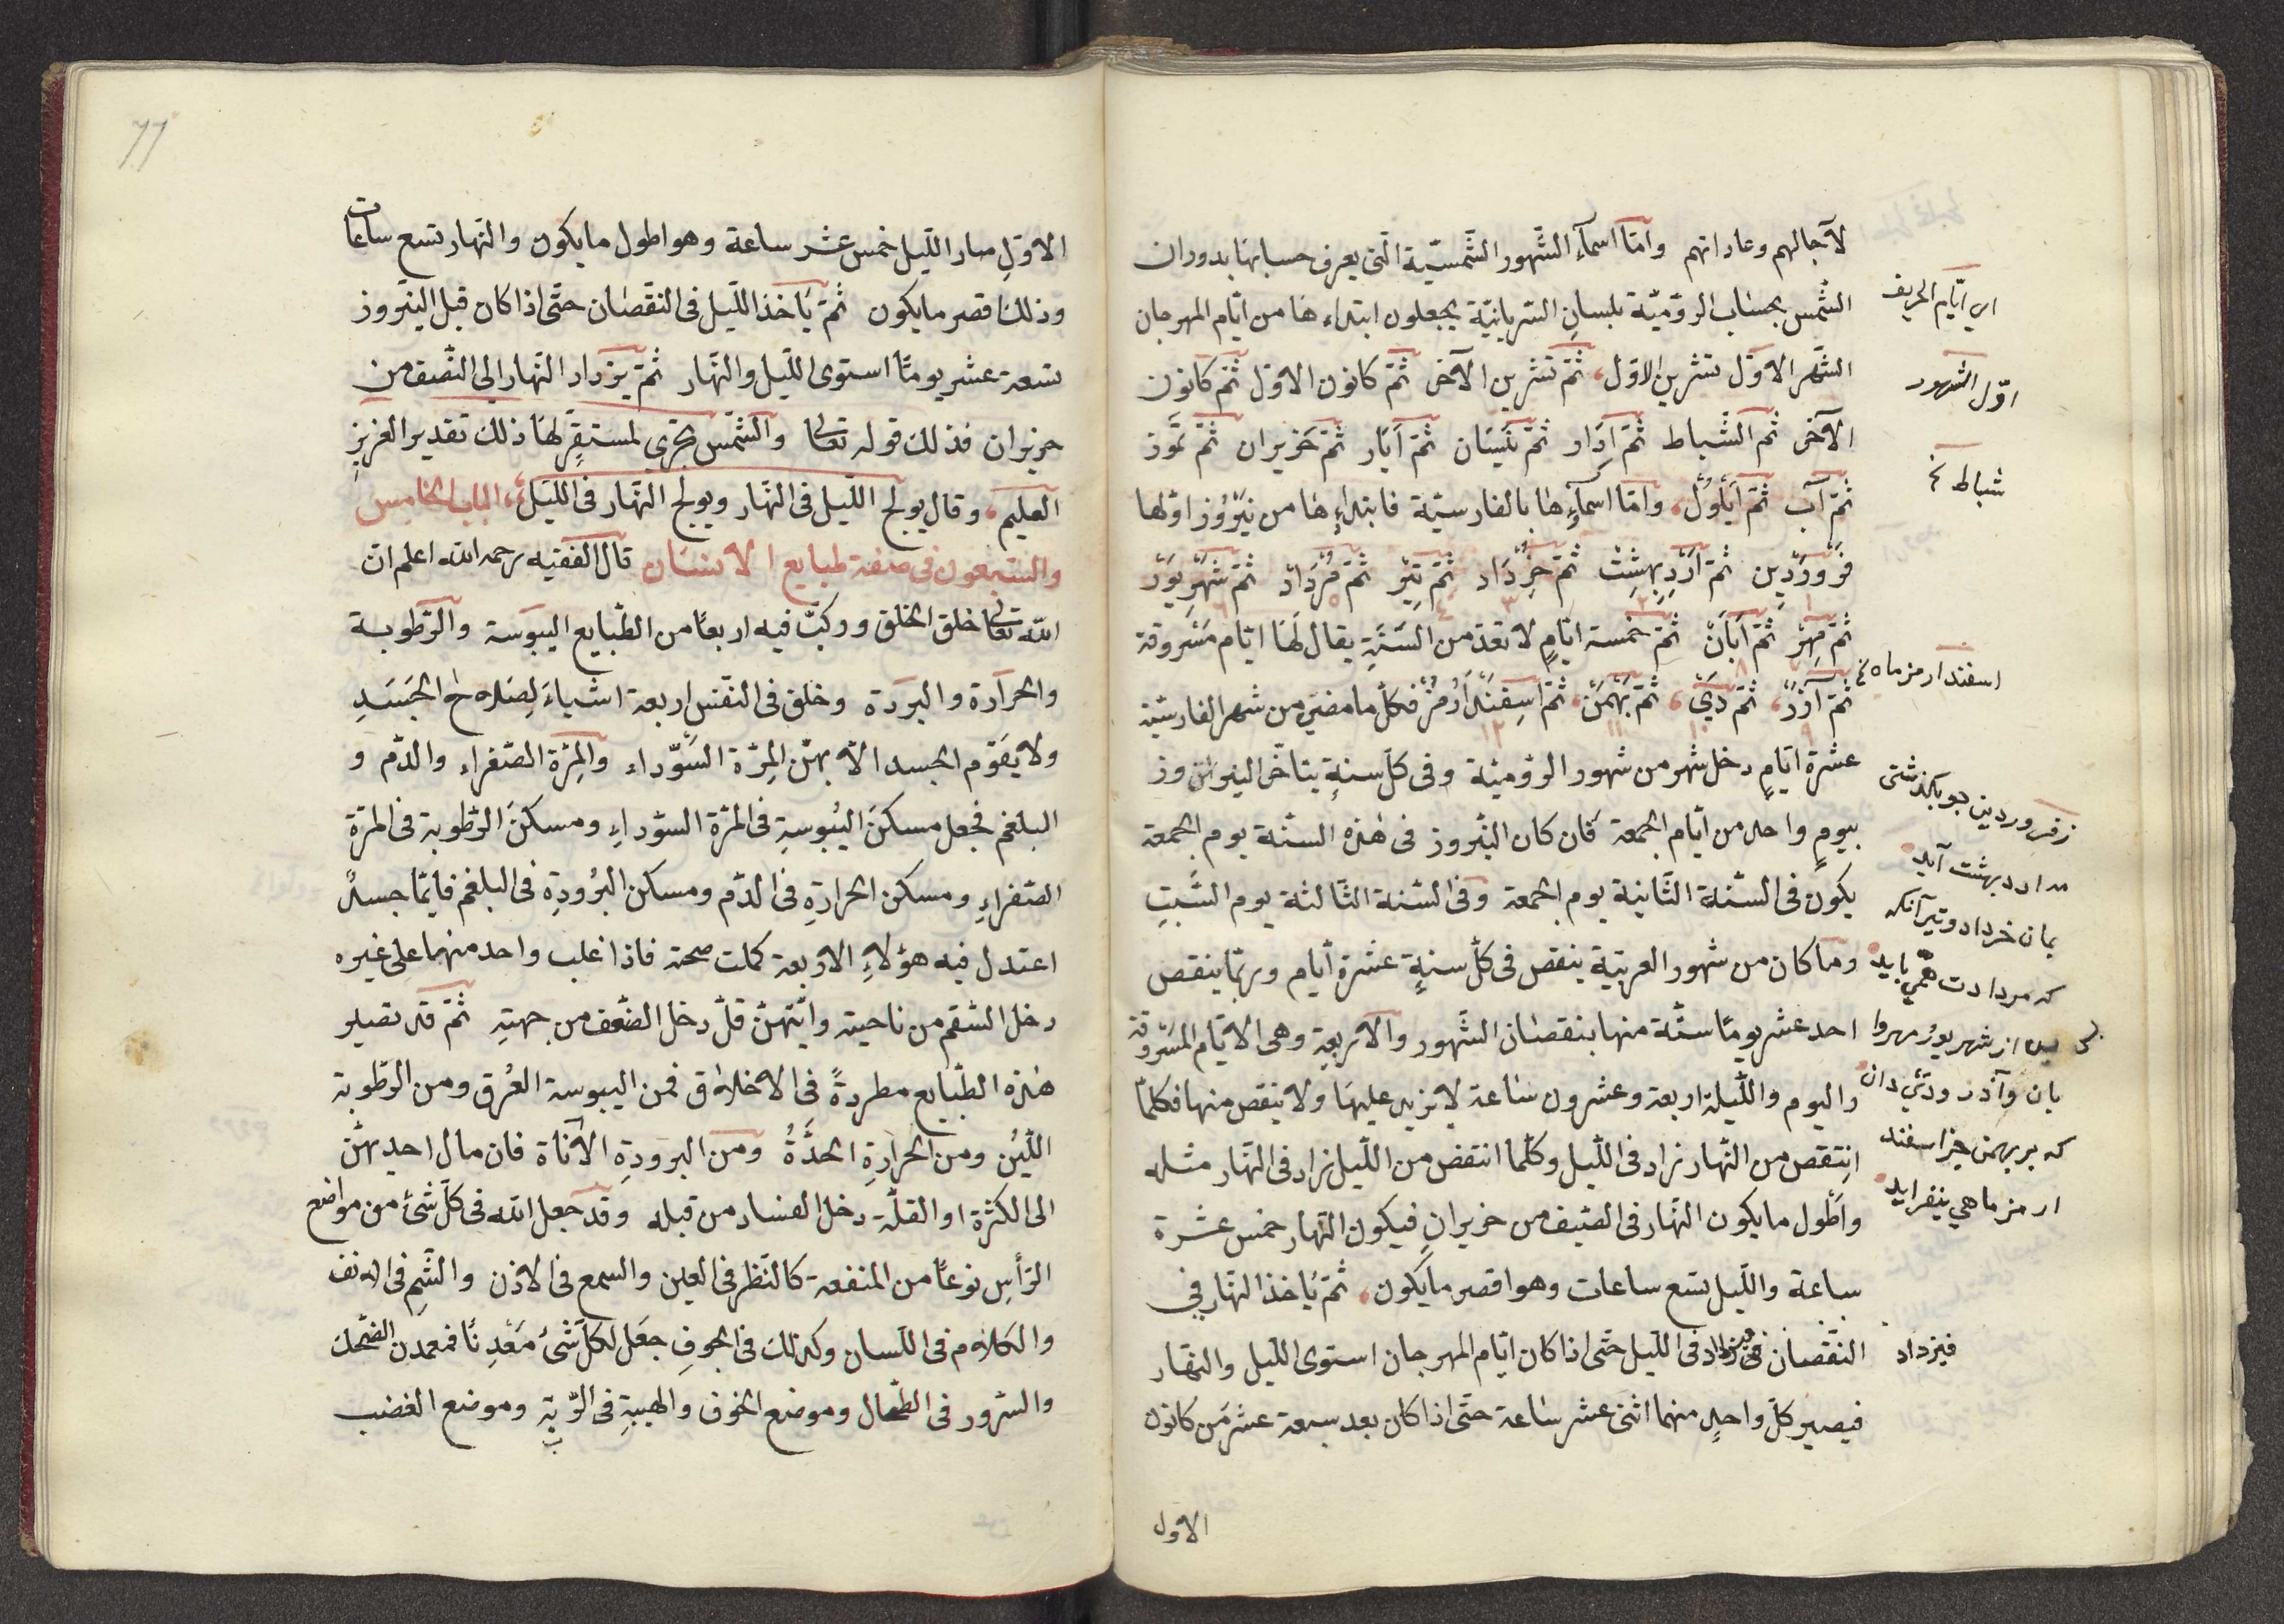 لآجالهم وعاداتهم وامّا اسمآء الشّهور الشّمسيّة الّتى يعرف حسابها بدوران
الشّمس بحساب الروميّة بلسان السّريانيّة يجعلون ابتداءها من ايّام المهرجان
الشّهر الاوّل تشرين الاوّل، ثمّ تشرين الآخر ثمّ كانون الاوّل ثمّ كانون
الآخر ثم الشّباط ثمّ آذار ثمّ نيسان ثمّ ايّار ثمّ حزيران ثمّ تمّوز
ثمّ آب ثمّ ايلول، وامّا اسمآؤها بالفارسيّة فابتداءها من نيروز اوّلها
فروردين ثمّ ارديبهشت ثمّ خرداد ثمّ تير ثمّ مرداد ثمّ شهريور
ثمّ مهر ثمّ آبان ثمّ خمسة ايّام لا تعدّ من السّنة يقال لها ايّام مسروقة
ثمّ آذر، ثمّ دي، ثمّ بهمن، ثمّ اسفندارمز فكلّ ما مضى من شهر الفارسيّة
عشرة ايّام دخل شهر من شهور الروميّة وفى كلّ سنة يتاخّر النيروز
بيوم واحد من ايّام الجمعة فان كان النّيروز فى هذه السنّة يوم الجمعة
يكون فى السّنة الثّانية يوم الجمعة وفى السّنة الثّالثة يوم السّبت
وما كان من شهور العربيّة ينقص فى كلّ سنة عشرة أيّام وربّما ينقص
احد عشر يومًا ستّة منها بنقصان الشّهور والاربعة وهى الايّام المسروقة
واليوم واللّيلة اربعة وعشرون ساعة لا يزيد عليها ولا ينقص منها فكلّما
انتقص من النّهار زاد فى اللّيل وكلّما انتقص من اللّيل زاد فى النّهار مثله
واطول ما يكون النّهار فى الصّيف من حزيران فيكون النّهار خمس عشرة
ساعة واللّيل تسع ساعات وهو اقصر ما يكون، ثمّ يأخذ النّهار في
النّقصان فى اللّيل حتّى اذا كان ايّام المهرجان استوى اللّيل والنّهار
فيصير كلّ واحد منهما اثنى عشر ساعة حتّى اذا كان بعد سبعة عشر من كانون
الاول
اي ايّام الخريف
اوّل الشهور
شباط
اسفندارمز ماه
زفروردين چو بگذشتى
مه ارديبهشت آيد
بمان خرداد وتير آنكه
كه مردادت همي بايد
از شهريور مهر وا
بان وآذر ودي دان
كه بر بهمن جز اسفند
ارمز ماهي نيفزايد
فيزداد
77
الاوّل صار اللّيل خمس عشر ساعة وهو اطول ما يكون والنّهار تسع ساعات
وذلك اقصر ما يكون ثمّ يأخذ اللّيل فى النّقصان حتّى اذا كان قبل النّيروز
بتسعة عشر يومًا استوى اللّيل والنّهار ثمّ يزداد النّهار الى النّصف من
حزيران فذلك قوله تعالى والشّمس تجري لمستقرّ لها ذلك تقدير العزيز
العليم، وقال يولج اللّيل فى النّهار ويولج النّهار فى اللّيل، الباب الخامس
والسّبعون فى صفة طبايع الانسان قال الفقيه رحمه الله اعلم انّ
الله تعالى خلق الخلق وركّب فيه اربعًا من الطّبايع اليبوسة والرّطوبة
والحرارة والبرودة وخلق فى النّفس اربعة اشياء لصلاح الجسد
ولا يقوّم الجسد الاّ بهنّ المِرّة السّوداء والمِرّة الصّفراء والدّم و
البلغم فجعل مسكن اليبوسة فى المرّة السوداء ومسكن الرّطوبة فى المرّة
الصّفراء ومسكن الحرارة فى الدّم ومسكن البرودة فى البلغم فايّما جسد
اعتدل فيه هؤلاء الاربعة كملت صحته فاذا غلب واحد منهما على غيره
دخل السّقم من ناحيته وايّتهنّ قلّ دخل الضّعف من جهته ثمّ قد تصير
هذه الطّبايع مطردة فى الاخلاق فمن اليبوسة العزق ومن الرّطوبة
اللّين ومن الحرارة الحدّة ومن البرودة الأناة فان مال احديهنّ
الى الكثرة او القلّة دخل الفساد من قبله وقد جعل الله فى كلّ شئ من مواضع
الرّأس نوعًا من المنفعة كالنّظر فى العين والسمع فى الاذن والشّمّ فى الانف
والكلام فى اللّسان وكذلك فى الجوف جعل لكلّ شئ معدنًا فمعدن الضّحك
والسّرور فى الطّحال وموضع الخوف والهيبة فى الرّية وموضع الغضب